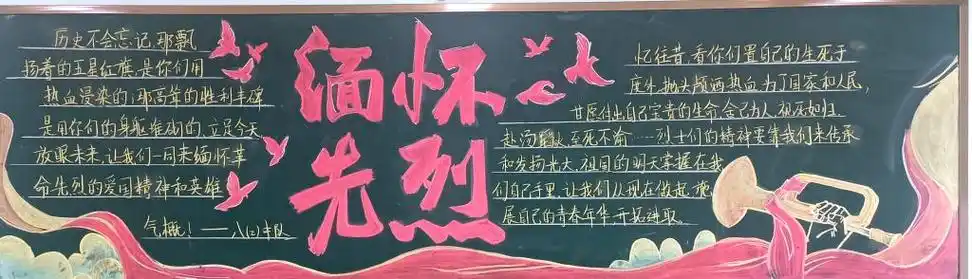 历史不会忘记,那飘
扬着的五星红旗,是你们用
热血浸染的;那高耸的胜利丰碑
是用你们的身躯堆砌的,立足今天
放眼未来,让我们一同来缅怀革
命先烈的爱国精神和英雄
气概!——八(2)中队
缅怀
先烈
忆往昔,看你们置自己的生死于
度外,抛头颅洒热血,为了国家和人民,
甘愿付出自己宝贵的生命,舍己为人,视死如归
赴汤蹈火,至死不渝……烈士们的精神要靠我们来传承
和发扬光大,祖国的明天掌握在我
们自己手里,让我们从现在做起,施
展自己的青春年华,开拓进取。